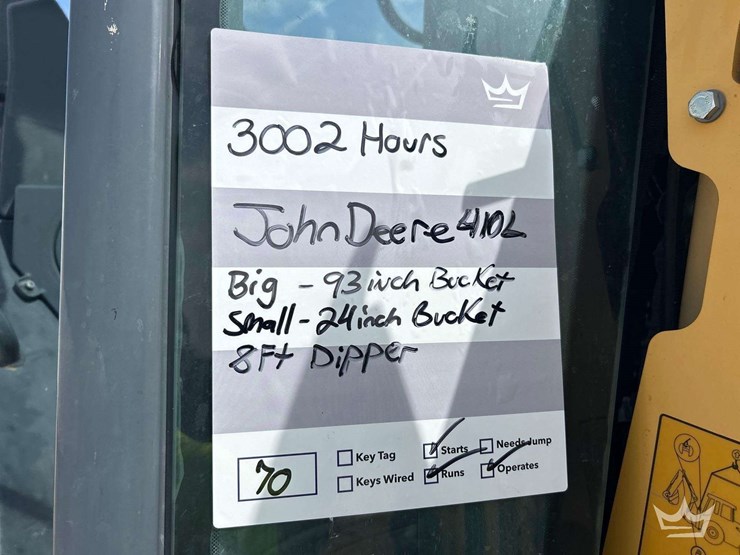 3002 Hours
John Deere 410L
Big - 93 inch Bucket
Small - 24 inch Bucket
8Ft Dipper
70
Key Tag
Starts
Needs Jump
Keys Wired
Runs
Operates